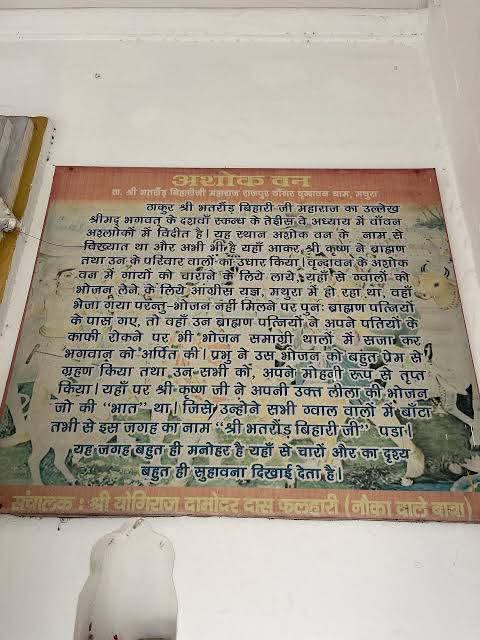 अशोक वन
ठा. श्री भतरौंड़ बिहारीजी महाराज राजपुर बाँगर वृन्दावन धाम, मथुरा
ठाकुर श्री भतरौंड़ बिहारी जी महाराज का उल्लेख
श्रीमद् भगवत के दशवाँ स्कन्ध के तेईस वे अध्याय में वॉवन
अश्लोकों में विदीत है। यह स्थान अशोक वन के नाम से
विख्यात था और अभी भी है यहाँ आकर श्री कृष्ण ने ब्राह्मण
तथा उन के परिवार वालों का उधार किया। वृन्दावन के अशोक
वन में गायों को चाराने के लिये लाये, यहाँ से ग्वालों को
भोजन लेने के लिये आंगीस यज्ञ, मथुरा में हो रहा था, वहाँ
भेजा गया परन्तु भोजन नहीं मिलने पर पुनः ब्राह्मण पत्नियों
के पास गए, तो वहाँ उन ब्राह्मण पत्नियों ने अपने पतियों के
काफी रोकने पर भी भोजन समाग्री थालों में सजा कर
भगवान को अर्पित की। प्रभु ने उस भोजन को बहुत प्रेम से
ग्रहण किया तथा उन सभी को, अपने मोहनी रूप से तृप्त
किया। यहाँ पर श्री कृष्ण जी ने अपनी उक्त लीला की भोजन
जो की "भात" था। जिसे उन्होने सभी ग्वाल वालों में बाँटा
तभी से इस जगह का नाम "श्री भतरौंड़ बिहारी जी" पड़ा।
यह जगह बहुत ही मनोहर है यहाँ से चारों और का दृश्य
बहुत ही सुहावना दिखाई देता है।
संचालक : श्री योगिराज दामोदर दास फलहारी (नौका वाले बाबा)